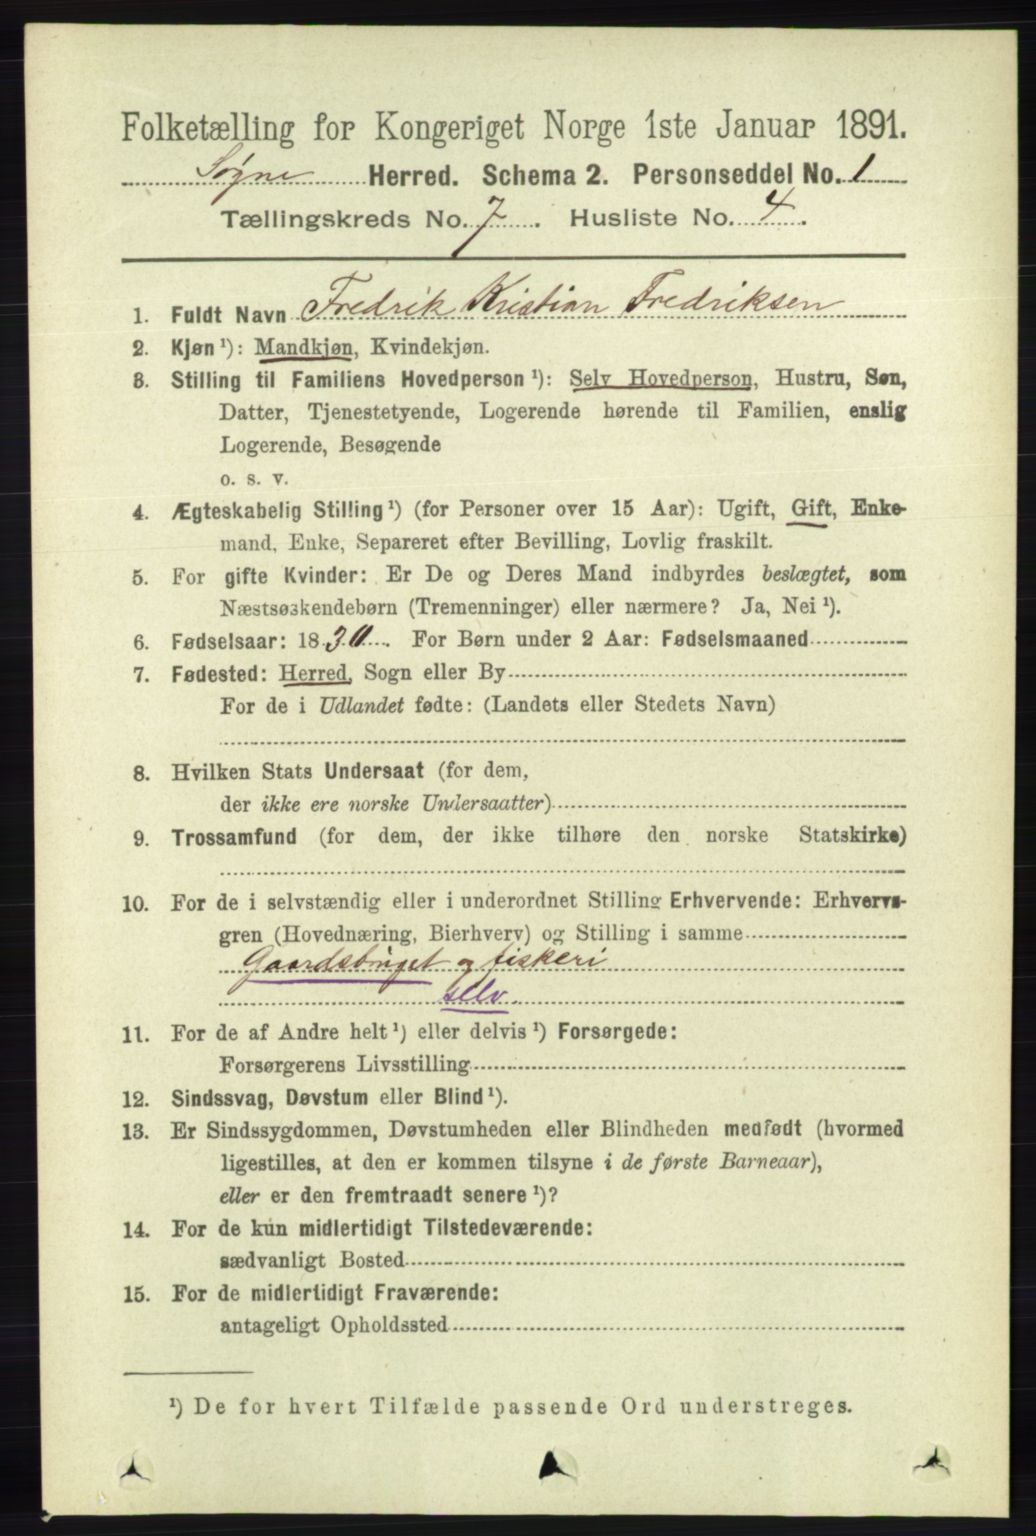 Folketælling for Kongeriget Norge 1ste Januar 1891.
Søgne Herred. Schema 2. Personseddel No. 1
Tællingskreds No. 7. Husliste No. 4.
1. Fuldt Navn Fredrik Kristian Fredriksen
2. Kjøn ¹): Mandkjøn, Kvindekjøn.
3. Stilling til Familiens Hovedperson ¹): Selv Hovedperson, Hustru, Søn,
Datter, Tjenestetyende, Logerende hørende til Familien, enslig
Logerende, Besøgende
o. s. v.
4. Ægteskabelig Stilling ¹) (for Personer over 15 Aar): Ugift, Gift, Enke-
mand, Enke, Separeret efter Bevilling, Lovlig fraskilt.
5. For gifte Kvinder: Er De og Deres Mand indbyrdes beslægtet, som
Næstsøskendebørn (Tremenninger) eller nærmere? Ja, Nei ¹).
6. Fødselsaar: 1830. For Børn under 2 Aar: Fødselsmaaned
7. Fødested: Herred, Sogn eller By
For de i Udlandet fødte: (Landets eller Stedets Navn)
8. Hvilken Stats Undersaat (for dem,
der ikke ere norske Undersaatter)
9. Trossamfund (for dem, der ikke tilhøre den norske Statskirke)
10. For de i selvstændig eller i underordnet Stilling Erhvervende: Erhvervs-
gren (Hovednæring, Bierhverv) og Stilling i samme
Gaardsbruget og fiskeri
selv.
11. For de af Andre helt ¹) eller delvis ¹) Forsørgede:
Forsørgerens Livsstilling
12. Sindssvag, Døvstum eller Blind ¹).
13. Er Sindssygdommen, Døvstumheden eller Blindheden medfødt (hvormed
ligestilles, at den er kommen tilsyne i de første Barneaar),
eller er den fremtraadt senere ¹)?
14. For de kun midlertidigt Tilstedeværende:
sædvanligt Bosted
15. For de midlertidigt Fraværende:
antageligt Opholdssted
¹) De for hvert Tilfælde passende Ord understreges.